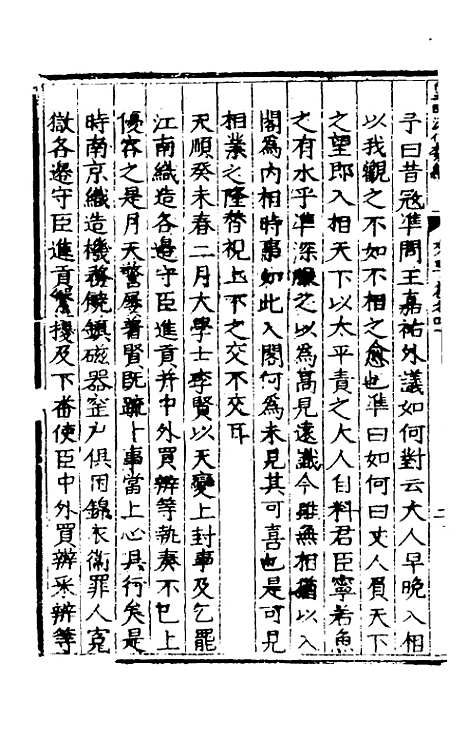 子曰昔冦凖問王嘉祐外議如何對云大人早晚入相
以我觀之不如不相之愈也凖曰如何曰丈人負天下
之望即入相天下以太平責之大人自料君臣寧若魚
之有水乎凖深服之以為髙見遠識今雖無相猶以入
閣為内相時事如此入閣何為未見其可喜也是可見
相業之隆替視上下之交不交耳
天順癸未春二月大學士李賢以天變上封事及乞罷
江南織造各邊守臣進貢并中外買辦等執奏不已上
優容之是月天警屡著賢旣䟽十事當上心具行矣是
時南京織造機務饒鎮磁器歪户俱困錦衣衛罪人寃
獄各邊守臣進貢繁擾及下畨使臣中外買辦采辦等